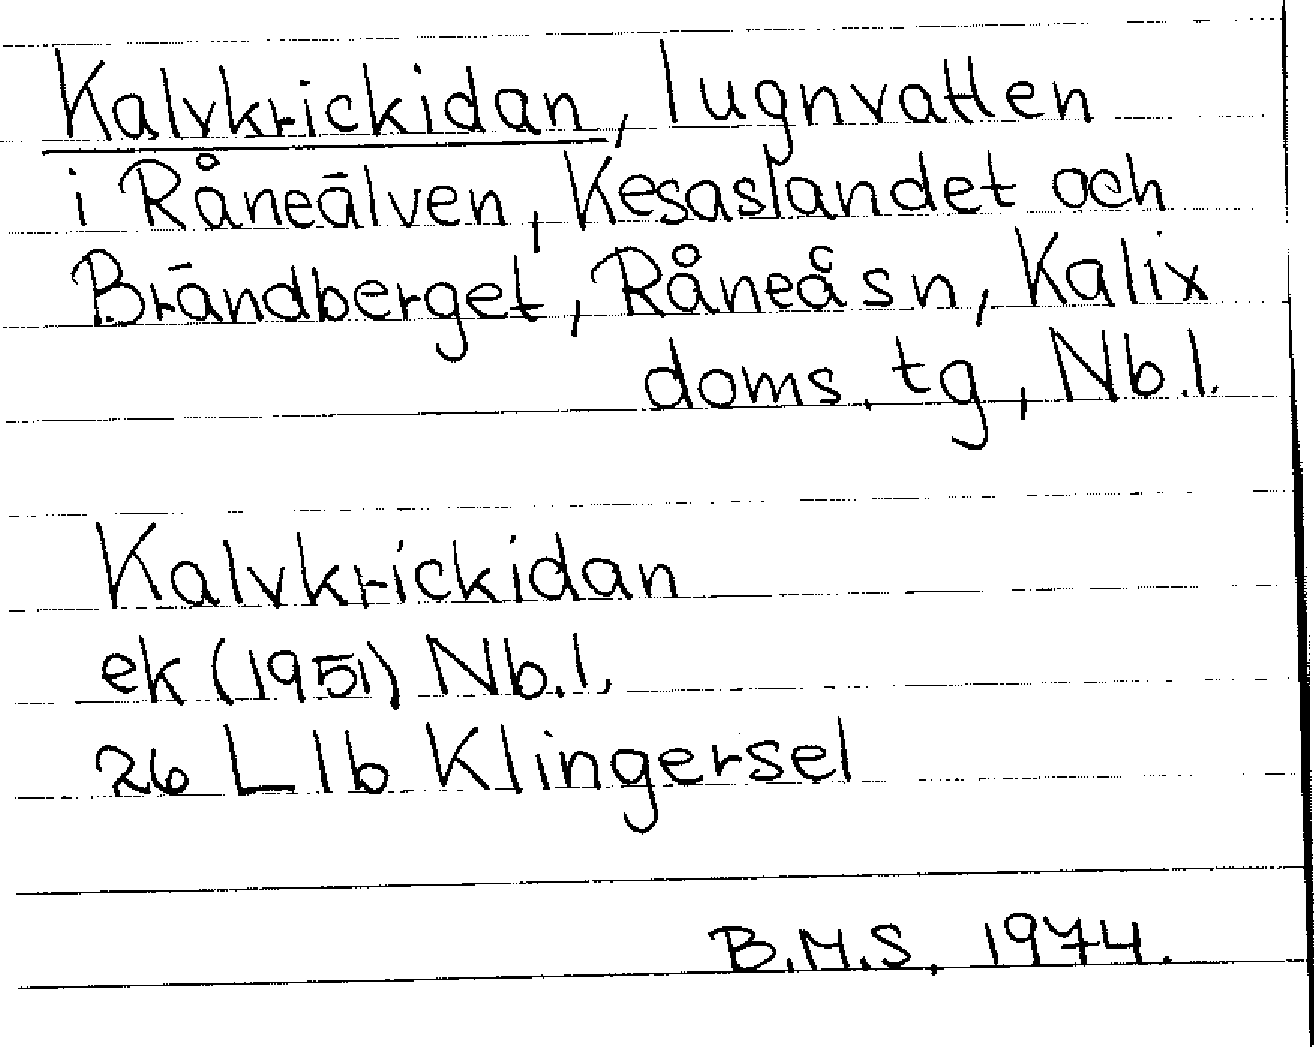 Kalvkrickidan, lugnvatten
i Råneälven, Kesaslandet och
Brändberget, Råneå sn, Kalix
doms. tg, Nb.l.
Kalvkrickidan
ek (1951) Nb.l.
26 L 1b Klingersel
B.M.S. 1974.